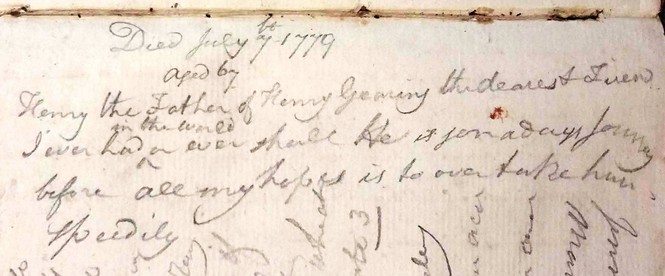 Died July 7th 1779
aged 67
Henry the Father of Henry Gearing the dearest Friend
in the world
I ever had ^ or ever shall He is gon a days Journey
before all my hopes is to over take him
speedily